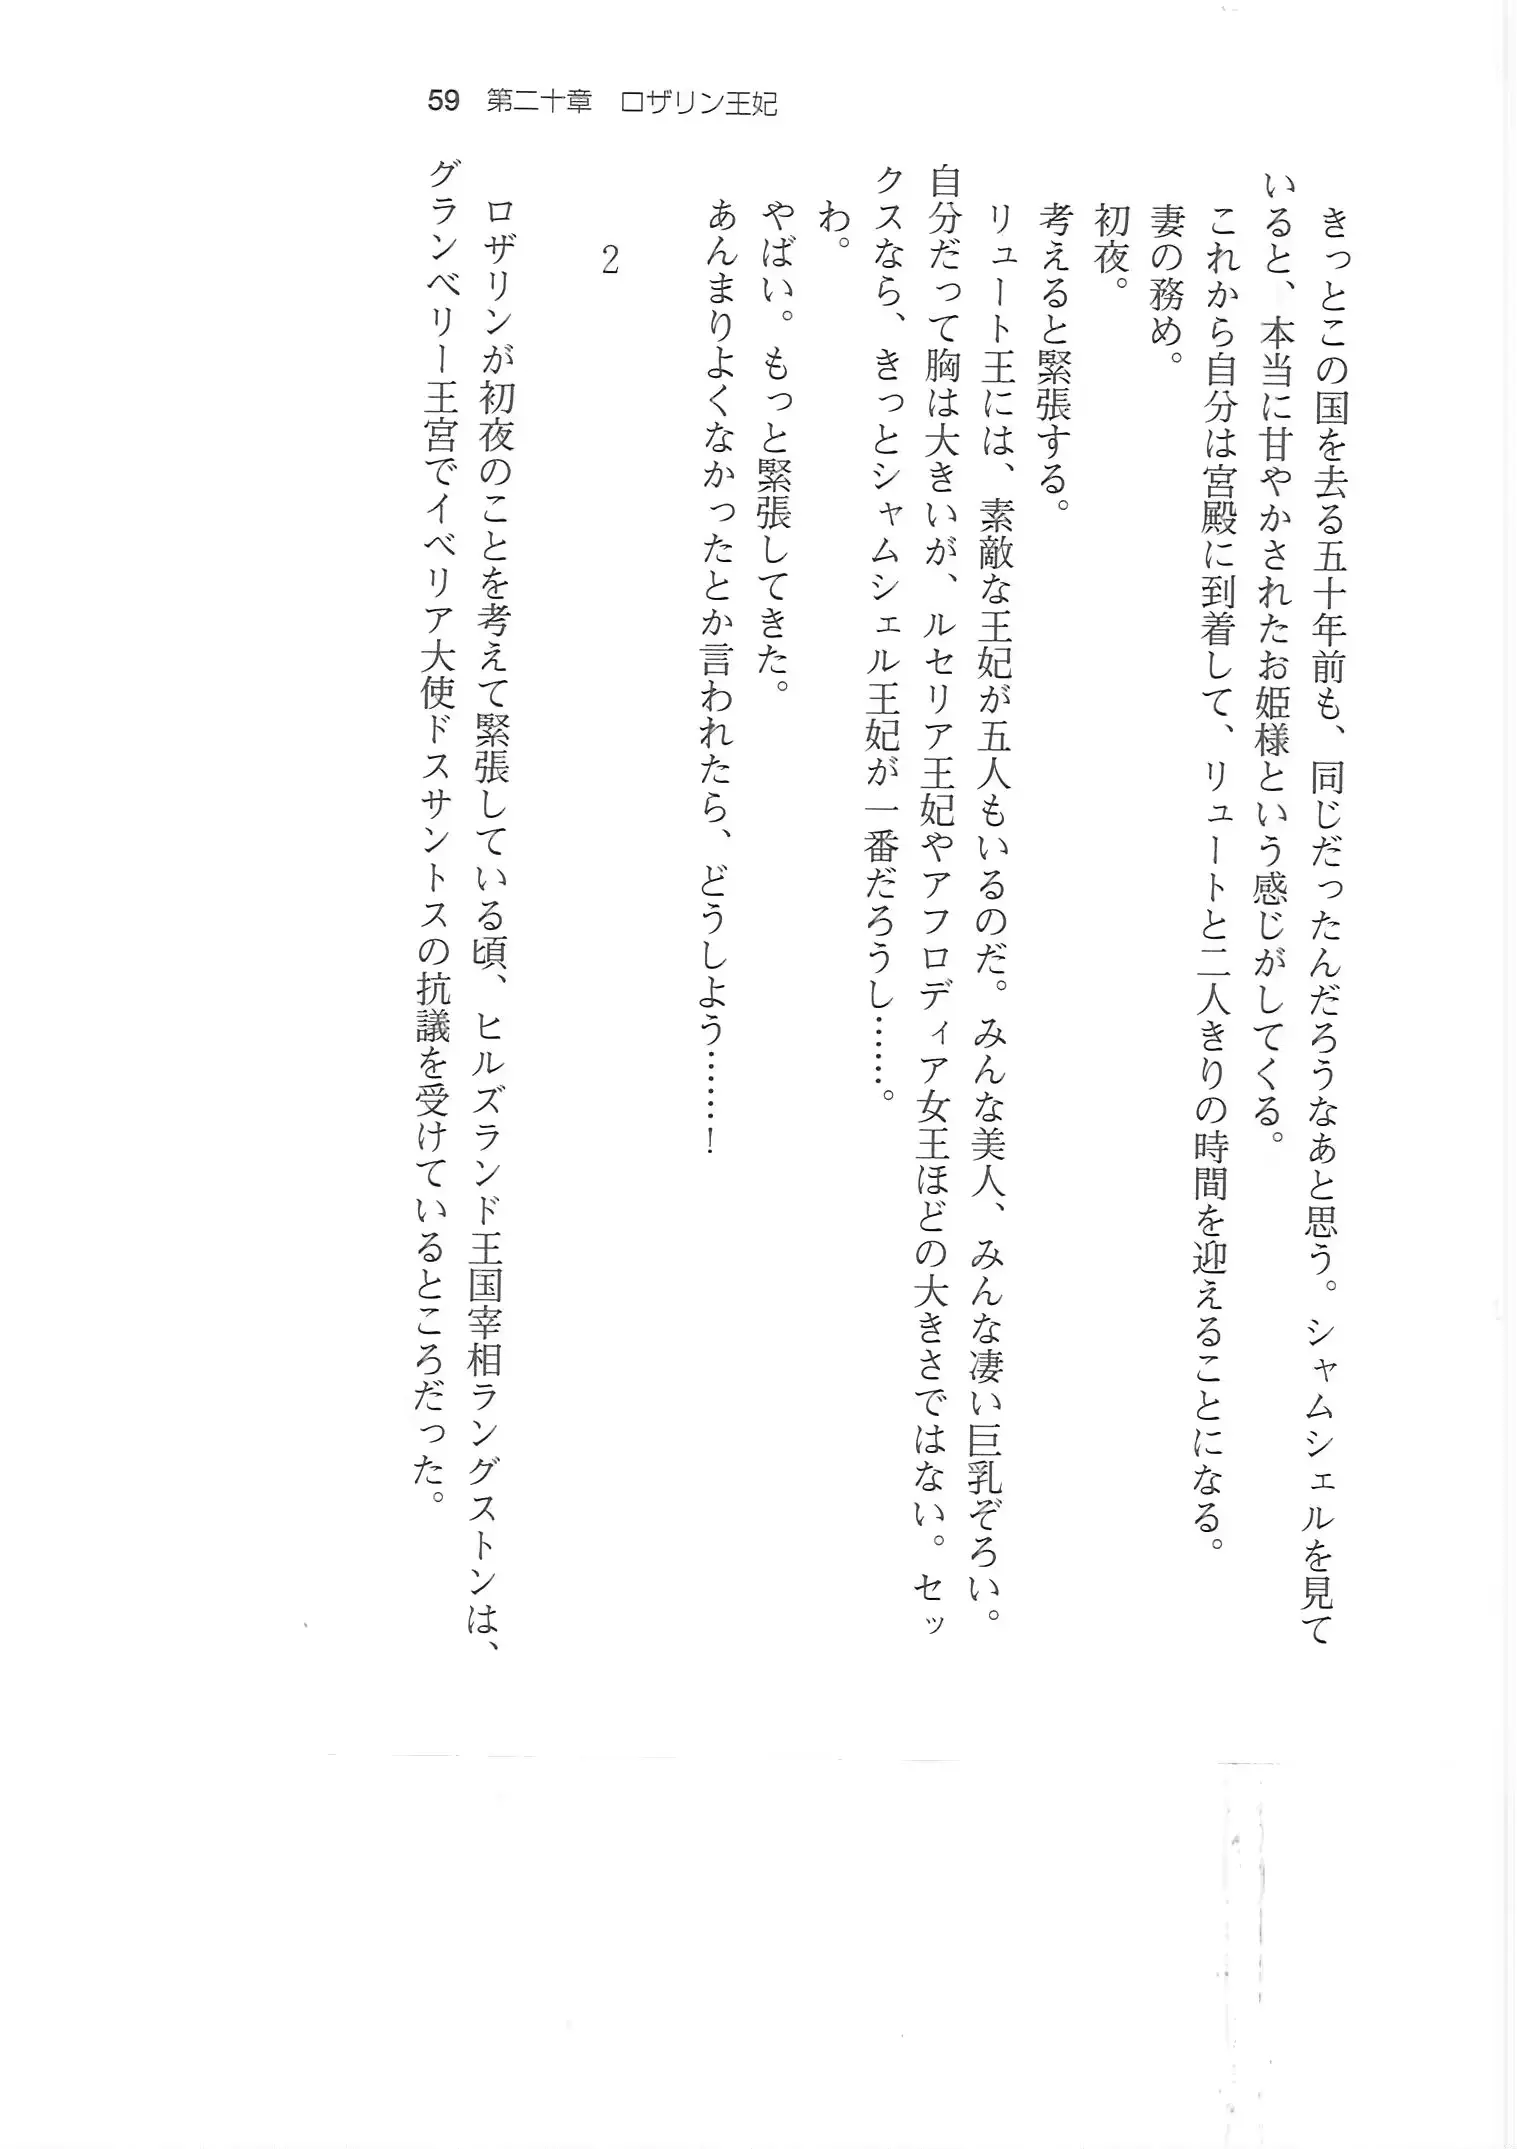 59 第二十章 ロザリン王妃
きっとこの国を去る五十年前も、同じだったんだろうなあと思う。シャムシェルを見て
いると、本当に甘やかされたお姫様という感じがしてくる。
これから自分は宮殿に到着して、リュートと二人きりの時間を迎えることになる。
妻の務め。
初夜。
考えると緊張する。
リュート王には、素敵な王妃が五人もいるのだ。みんな美人、みんな凄い巨乳ぞろい。
自分だって胸は大きいが、ルセリア王妃やアフロディア女王ほどの大きさではない。セッ
クスなら、きっとシャムシェル王妃が一番だろうし……。
わ。
やばい。もっと緊張してきた。
あんまりよくなかったとか言われたら、どうしよう……！
2
ロザリンが初夜のことを考えて緊張している頃、ヒルズランド王国宰相ラングストンは、
グランベリー王宮でイベリア大使ドスサントスの抗議を受けているところだった。